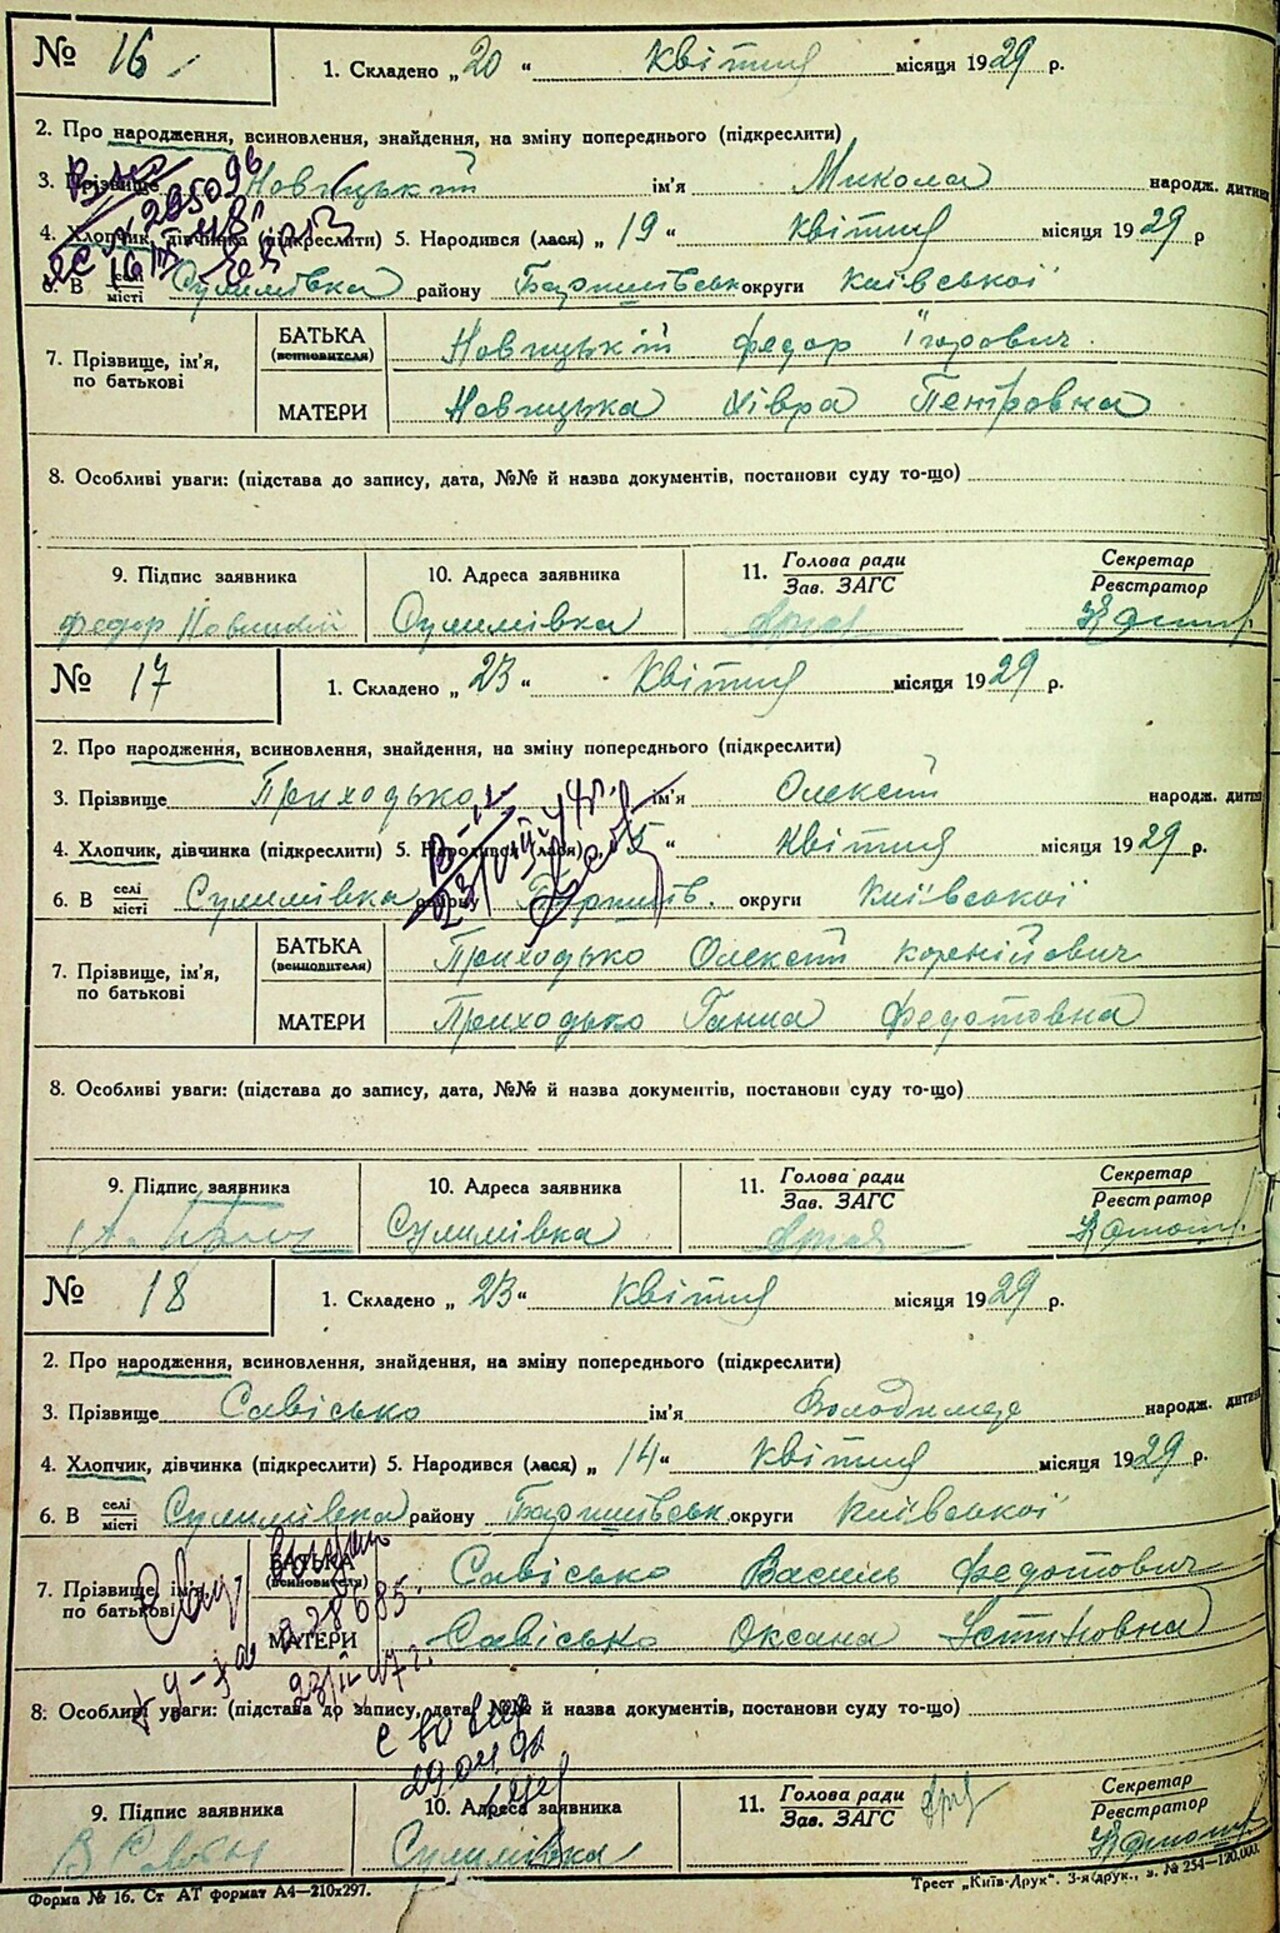 № 16 1. Складено „20“ Квітня місяця 1929 р.
2. Про народження, всиновлення, знайдення, на зміну попереднього (підкреслити)
3. Прізвище Новицький ім'я Микола народж. дитини
4. Хлопчик, дівчинка (підкреслити) 5. Народився (лася) „19“ Квітня місяця 1929 р
6. В селі/місті Сулимівка району Баришівськ округи Київської
7. Прізвище, ім'я, по батькові
БАТЬКА (всиновителя) Новицький Федор Ігорович
МАТЕРИ Новицька Хівра Петровна
8. Особливі уваги: (підстава до запису, дата, №№ й назва документів, постанови суду то-що)
9. Підпис заявника 10. Адреса заявника 11. Голова ради / Зав. ЗАГС Секретар / Реєстратор
Федор Новицкий Сулимівка
№ 17 1. Складено „23“ Квітня місяця 1929 р.
2. Про народження, всиновлення, знайдення, на зміну попереднього (підкреслити)
3. Прізвище Приходько ім'я Олексій народж. дитини
4. Хлопчик, дівчинка (підкреслити) 5. Народився (лася) „5“ Квітня місяця 1929 р.
6. В селі/місті Сулимівка району Баришів. округи Київської
7. Прізвище, ім'я, по батькові
БАТЬКА (всиновителя) Приходько Олексій Корнійович
МАТЕРИ Приходько Ганна Федотовна
8. Особливі уваги: (підстава до запису, дата, №№ й назва документів, постанови суду то-що)
9. Підпис заявника 10. Адреса заявника 11. Голова ради / Зав. ЗАГС Секретар / Реєстратор
Сулимівка
№ 18 1. Складено „23“ Квітня місяця 1929 р.
2. Про народження, всиновлення, знайдення, на зміну попереднього (підкреслити)
3. Прізвище Савісько ім'я Володимер народж. дитини
4. Хлопчик, дівчинка (підкреслити) 5. Народився (лася) „14“ Квітня місяця 1929 р.
6. В селі/місті Сулимівка району Баришівськ округи Київської
7. Прізвище, ім'я, по батькові
БАТЬКА (всиновителя) Савісько Василь Федотович
МАТЕРИ Савісько Оксана Устиновна
8. Особливі уваги: (підстава до запису, дата, №№ й назва документів, постанови суду то-що)
9. Підпис заявника 10. Адреса заявника 11. Голова ради / Зав. ЗАГС Секретар / Реєстратор
Сулимівка
Форма № 16. Ст АТ формат А4—210х297. Трест „Київ-Друк“. 3-я друк., з. № 254—120.000.